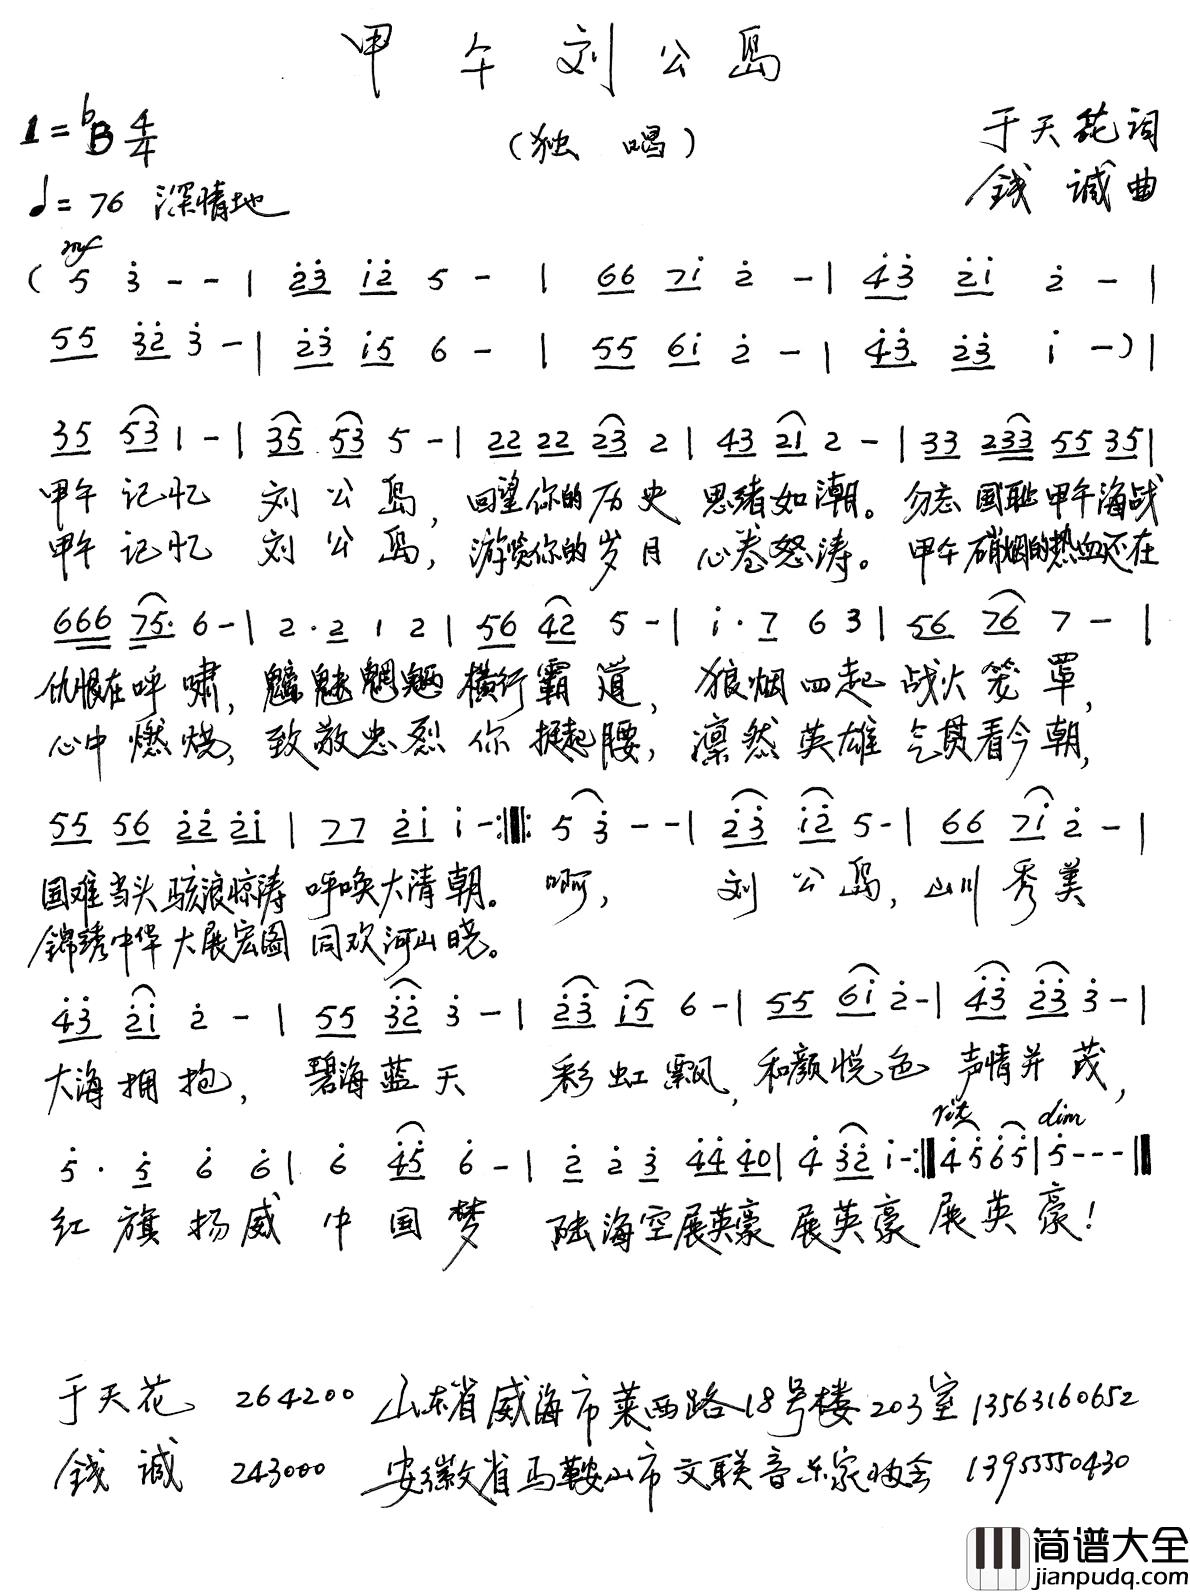 甲午刘公岛
1=♭B 4/4
(独 唱)
于天花词
♩=76 深情地
钱 诚曲
mf
( 5 3̇ - - | 2̇3̇ 1̇2̇ 5 - | 66 71̇ 2̇ - | 4̇3̇ 2̇1̇ 2̇ - |
55 3̇2̇ 3̇ - | 2̇3̇ 1̇5 6 - | 55 61̇ 2̇ - | 4̇3̇ 2̇3̇ 1̇ - ) |
35 53 1 - | 35 53 5 - | 22 22 23 2 | 43 21 2 - | 33 233 55 35 |
甲午 记忆 刘 公 岛, 回望你的 历 史 思绪如潮。 勿忘 国耻 甲午海战
甲午 记忆 刘 公 岛, 游览你的 岁 月 心卷怒涛。 甲午 硝烟的热血还在
666 75· 6 - | 2 · 2 1 2 | 56 42 5 - | 1̇ · 7 6 3 | 56 76 7 - |
仇恨在呼 啸, 魑魅魍魉 横行霸 道, 狼烟四起 战火笼 罩,
心中 燃 烧, 致敬忠烈 你 挺起腰, 凛然英雄 气贯看今朝,
55 56 2̇2̇ 2̇1̇ | 77 2̇1̇ 1̇ - :‖: 5 3̇ - - | 2̇3̇ 1̇2̇ 5 - | 66 71̇ 2̇ - |
国难当头 骇浪惊涛 呼唤大清朝。 啊, 刘 公 岛, 山川秀美
锦绣中华 大展宏图 同欢河山晓。
4̇3̇ 2̇1̇ 2̇ - | 55 3̇2̇ 3̇ - | 2̇3̇ 1̇5 6 - | 55 61̇ 2̇ - | 4̇3̇ 2̇3̇ 3̇ - |
大海 拥 抱, 碧海蓝天 彩 虹 飘, 和颜悦色 声情并 茂,
rit dim
5̇ · 5̇ 6̇ 6̇ | 6̇ 4̇5̇ 6̇ - | 2̇ 2̇ 3̇ 4̇4̇ 4̇0 | 4̇ 3̇2̇ 1̇ - :‖ 4̇ 5̇ 6̇ 5̇ | 5̇ - - - ‖
红 旗 扬 威 中 国 梦 陆海空展英豪 展英豪 展英豪!
于天花 264200 山东省威海市莱西路18号楼203室 13563160652
钱 诚 243000 安徽省马鞍山市文联音乐家协会 13955550430
简谱大全
jianpudq.com